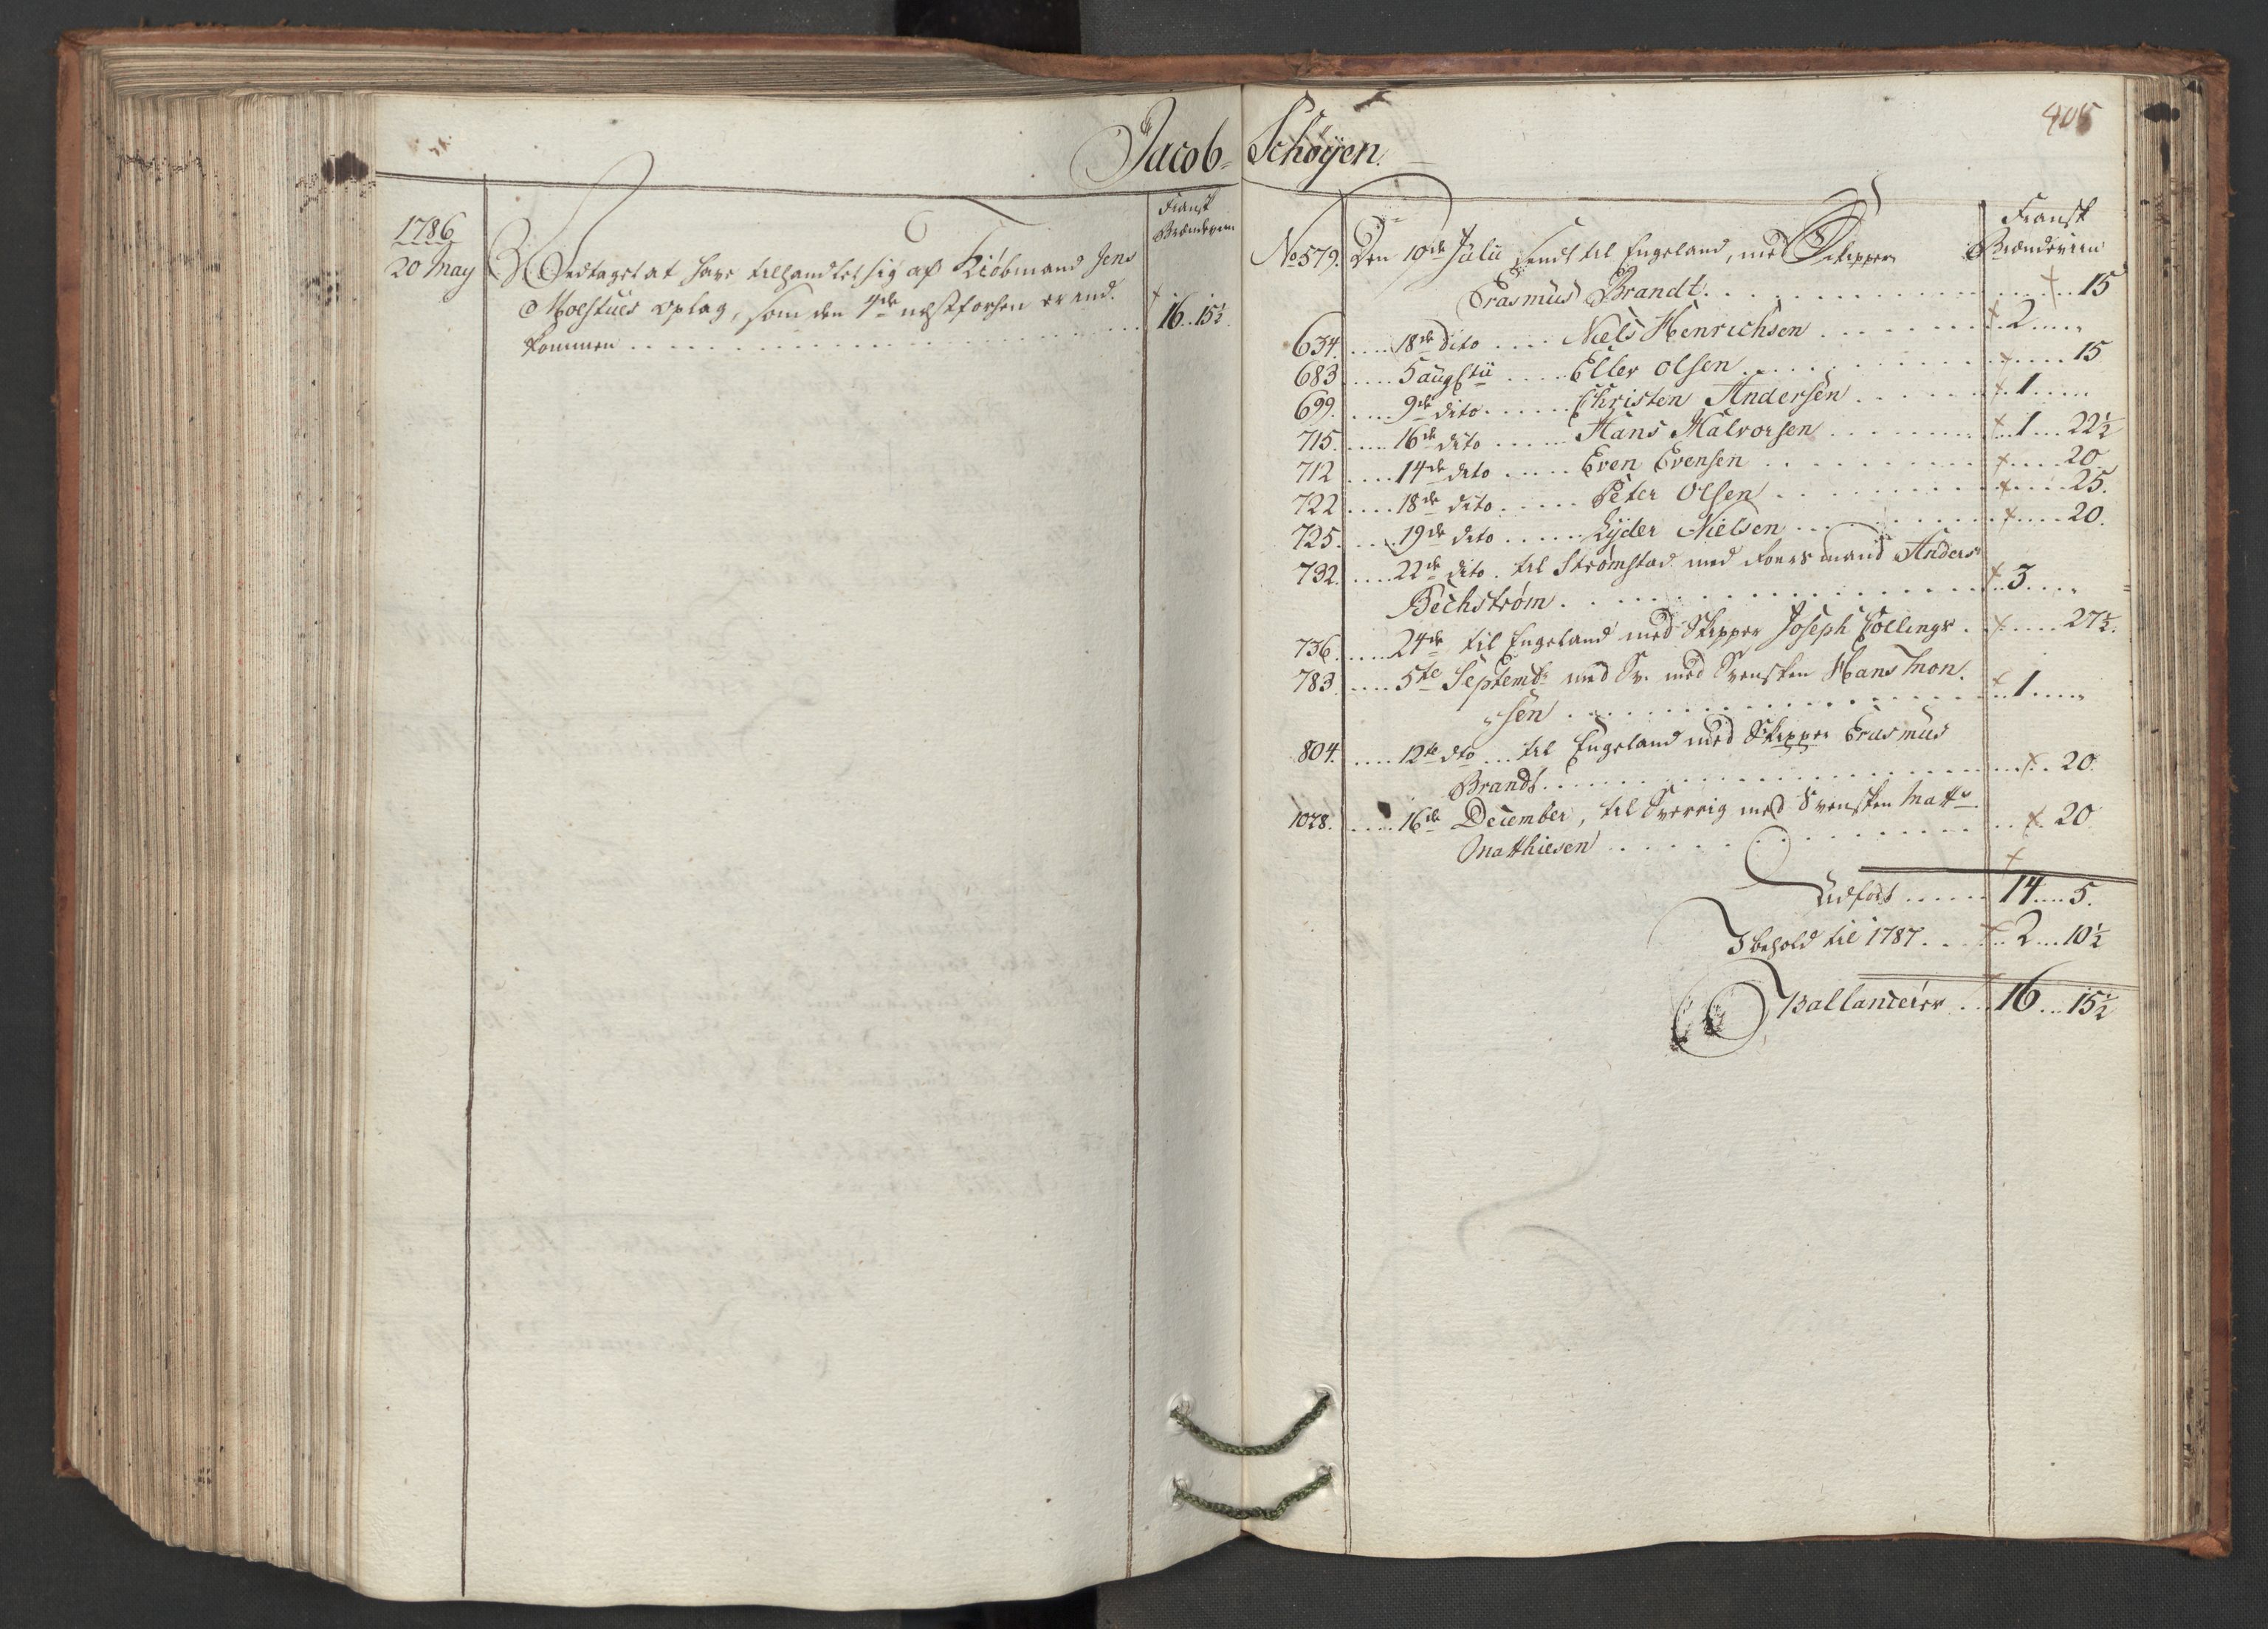 Jacob Schøÿen.
405
1786
20 May
Fransk
Brændeviin
Vedtaget at have tilhandlet sig af Kiøbmand Jens
Moestues oplag, som den 4de næstforhen er and.
kommen . . . 16 .. 15½
Fransk
Brændeviin
No 579. Den 10de Julii sendt til Engeland, med Skipper
Erasmus Brandt . . . 15
634. . . . 18de dito . . . Niels Henrichsen . . . 2 . . . „
683 . . . 5 augstii . . . Eller Olsen . . . 15
699. . . . 9de dito . . . Christen Andersen . . . 1 . . . „
715. . . . 16de dito . . . Hans Halvorsen . . . 1 . . . 22½
712 . . . 14de dito . . . Even Evensen . . . 20.
722 . . . 18de dito . . . Peter Olsen . . . 25.
725. . . . 19de dito . . . Lyder Nielsen . . . 20.
732. . . . 22de dito . til Strømstad med Foeresmand Anders
Bechstrøm . . . 3 . . . „
736. . . . 24de til Engeland med Skipper Joseph Collings . . . 27½.
783 . . . 5te Septembr med Svensken Hans Mon.
„sen . . . 1 . . . „
804. . . . 12te dto . . . til Engeland med Skipper Erasmus
Brandt . . . 20.
1028. . . . 16de December, til Sverrig med Svensken Matts
Matthiesen . . . 20.
Udført . . . 14 . . . 5.
I behold til 1787 . . . 2 . . . 10½
Ballancerer . . . 16 . . . 15½